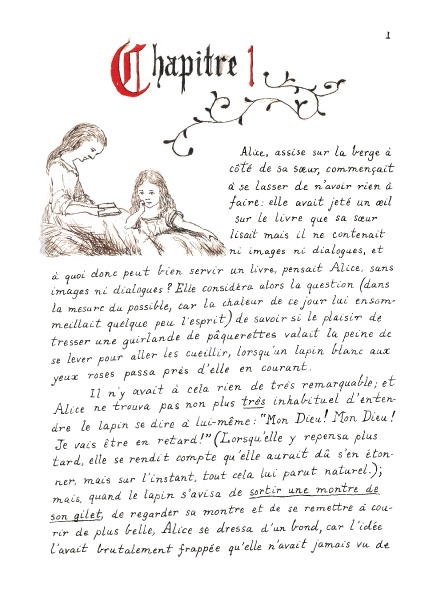 1
Chapitre 1
Alice, assise sur la berge à
côté de sa sœur, commençait
à se lasser de n'avoir rien à
faire : elle avait jeté un œil
sur le livre que sa sœur
lisait mais il ne contenait
ni images ni dialogues, et
à quoi donc peut bien servir un livre, pensait Alice, sans
images ni dialogues ? Elle considèra alors la question (dans
la mesure du possible, car la chaleur de ce jour lui ensom-
meillait quelque peu l'esprit) de savoir si le plaisir de
tresser une guirlande de pâquerettes valait la peine de
se lever pour aller les cueillir, lorsqu'un lapin blanc aux
yeux roses passa près d'elle en courant.
Il n'y avait à cela rien de très remarquable ; et
Alice ne trouva pas non plus très inhabituel d'enten-
dre le lapin se dire à lui-même : "Mon Dieu ! Mon Dieu !
Je vais être en retard !" (Lorsqu'elle y repensa plus
tard, elle se rendit compte qu'elle aurait dû s'en éton-
ner, mais sur l'instant, tout cela lui parut naturel.) ;
mais, quand le lapin s'avisa de sortir une montre de
son gilet, de regarder sa montre et de se remettre à cou-
rir de plus belle, Alice se dressa d'un bond, car l'idée
l'avait brutalement frappée qu'elle n'avait jamais vu de